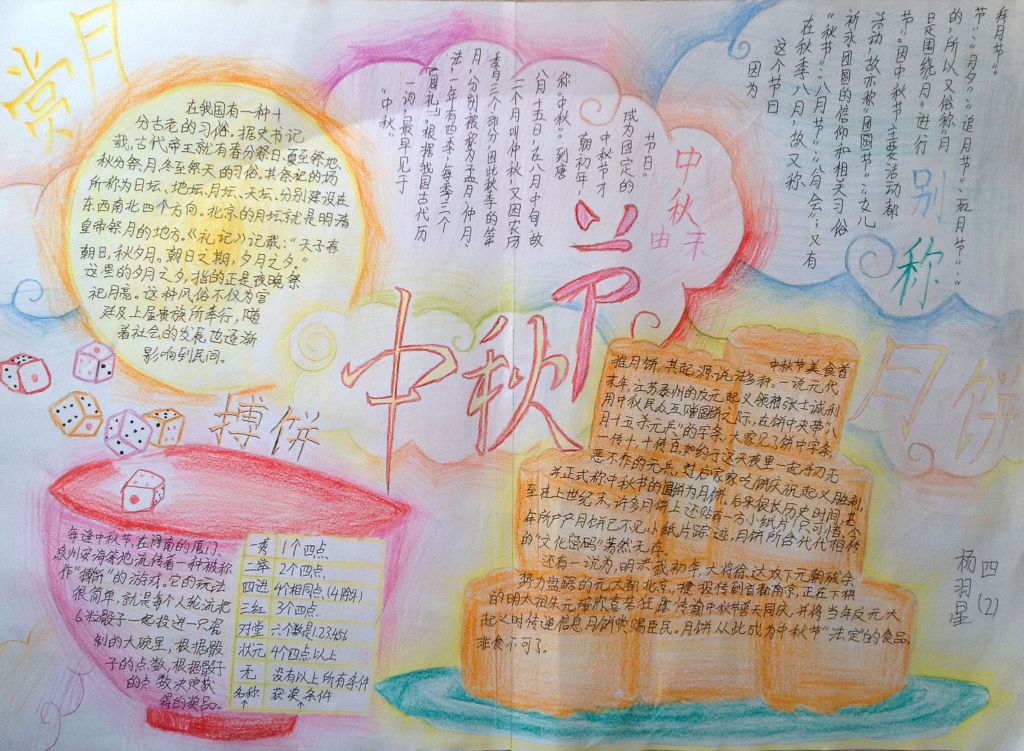 赏月
在我国有一种十
分古老的习俗。据史书记
载，古代帝王就有春分祭日、夏至祭地、
秋分祭月、冬至祭天的习俗。其祭祀的场
所称为日坛、地坛、月坛、天坛。分别建设在
东西南北四个方向。北京的月坛就是明清
皇帝祭月的地方。《礼记》记载：“天子春
朝日，秋夕月。朝日之期，夕月之夕。”
这里的夕月之夕，指的正是夜晚祭
祀月亮。这种风俗不仅为宫
廷及上层贵族所奉行，随
着社会的发展，也逐渐
影响到民间。
中秋节
中秋由来
“中秋”
一词，最早见于
《周礼》。根据我国古代历
法，一年有四季，每季三个
月，分别被称为孟月、仲月、
季月三个部分，因此秋季的第
二个月叫仲秋，又因农历
八月十五日，在八月中旬，故
称“中秋”。到唐
朝初年，
中秋节才
成为固定的
节日。
别称
因为
这个节日
在秋季、八月，故又称
“秋节”、“八月节”、“八月会”；又有
祈求团圆的信仰和相关习俗
活动，故亦称“团圆节”、“女儿
节”。因中秋节的主要活动都
是围绕“月”进行
的，所以又俗称“月
节”、“月夕”、“追月节”、“玩月节”、“
拜月节”。
搏饼
每逢中秋节，在闽南的厦门、
泉州安海等地，流传着一种被称
作“搏饼”的游戏。它的玩法
很简单，就是每个人轮流把
6粒骰子一起投进一只瓷
制的大碗里，根据骰
子的点数，根据骰子
的点数决定获
得的奖品。
一秀 1个四点
二举 2个四点
四进 4个相同点（4除外）
三红 3个四点
对堂 六个数是123456
状元 4个四点以上
无 没有以上所有条件
名称 获奖条件
月饼
中秋节美食首
推月饼，其起源说法多种。一说元代
末年，江苏泰州的反元起义领袖张士诚利
用中秋民众互赠圆饼之际，在饼中夹带“八
月十五杀元兵”的字条，大家见了饼中字条，
一传十，十传百，如约于这天夜里一起手刃无
恶不作的元兵，过后家家吃饼庆祝起义胜利，
并正式称中秋节的圆饼为月饼。后来很长历史时间，甚
至在上世纪末，许多月饼上还贴有一方小纸片！只可惜，近
年所产月饼已不见小纸片踪迹，月饼所含代代相传
的“文化密码”荡然无存。
还有一说为，明太武初年，大将徐达攻下元朝残余
势力盘踞的元大都北京，捷报传到首都南京，正在下棋
的明太祖朱元璋欣喜若狂，即传谕中秋节普天同庆，并将当年反元大
起义时传递信息月饼赏赐臣民。月饼从此成为中秋节“法定”的食品，
非食不可了。
四（2）
杨羽星